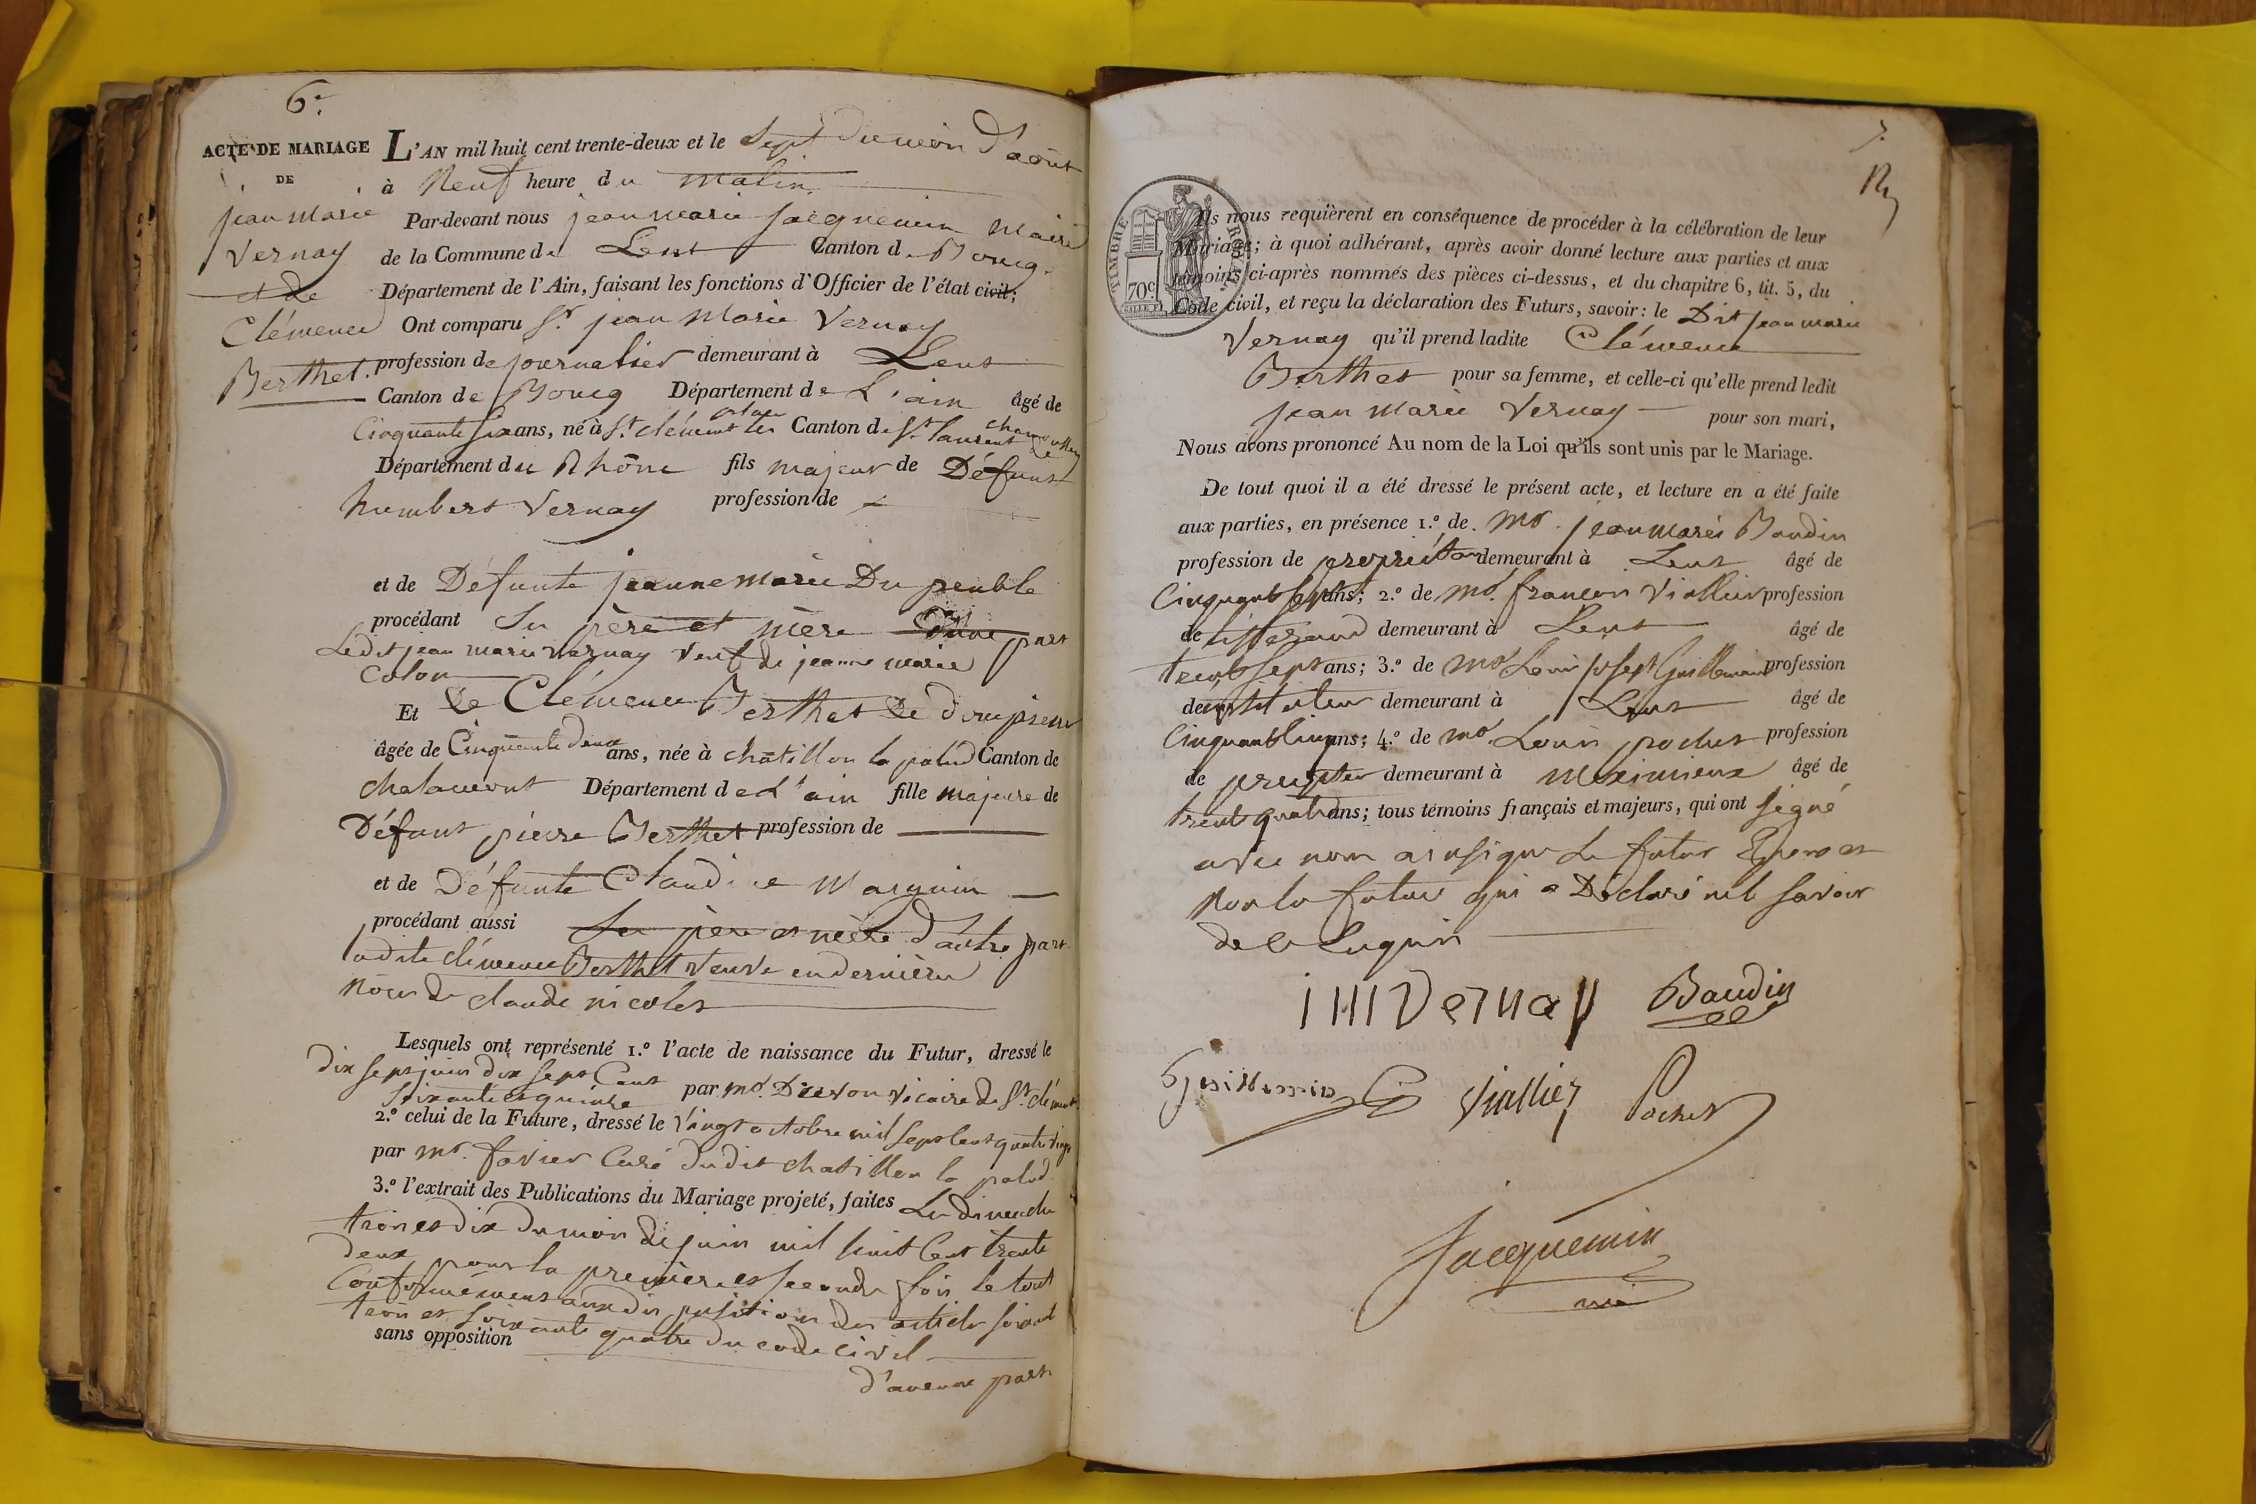 6e.
ACTE DE MARIAGE
DE
jean Marie
Vernay
et de
Clémence
Berthet.
L'AN mil huit cent trente-deux et le Sept du mois d'août
à Neuf heure du matin
Par-devant nous jean marie Jacquemin Maire
de la Commune de Lent Canton de Bourg
Département de l'Ain, faisant les fonctions d'Officier de l'état civil;
Ont comparu Sr. jean Marie Vernay
profession de journalier demeurant à Lent
Canton de Bourg Département de L'ain âgé de
Cinquante six ans, né à St. clément les Canton de St. laurent
Département du Rhône fils majeur de Défunt
humbert Vernay profession de
et de Défunte jeanne Marie Du peuble
procédant Ses père et mère D'une part
Ledit jean marie vernay veuf de jeanne marie
Colon
Et de Clémence Berthet de dompierre
âgée de Cinquante deux ans, née à chatillon la palud Canton de
chalamont Département de L'ain fille majeure de
Défunt pierre Berthet profession de
et de Défunte Claudine Marguin
procédant aussi Ses père et mère d'autre part
ladite clémence Berthet veuve en dernières
noces de claude nicolet
Lesquels ont représenté 1.º l'acte de naissance du Futur, dressé le
dix sept juin dix sept Cent
soixante et quinze par mr. vicaire de St. clément
2.º celui de la Future, dressé le vingt octobre mil sept cent quatre vingt
par mr. favier Curé dudit chatillon la palud
3.º l'extrait des Publications du Mariage projeté, faites Les dimanche
trois et dix du mois de juin mil huit Cent trente
deux pour la première et seconde fois le tout
Conformément aux dispositions des article soixante
trois et soixante quatre du code civil
sans opposition
d'aucune part
Ils nous requièrent en conséquence de procéder à la célébration de leur
Mariage; à quoi adhérant, après avoir donné lecture aux parties et aux
témoins ci-après nommés des pièces ci-dessus, et du chapitre 6, tit. 5, du
Code civil, et reçu la déclaration des Futurs, savoir: le Dit jean marie
Vernay qu'il prend ladite Clémence
Berthet pour sa femme, et celle-ci qu'elle prend ledit
jean Marie Vernay pour son mari,
Nous avons prononcé Au nom de la Loi qu'ils sont unis par le Mariage.
De tout quoi il a été dressé le présent acte, et lecture en a été faite
aux parties, en présence 1.º de mr. jean marie Baudin
profession de propriétaire demeurant à Lent âgé de
Cinquante sept ans; 2.º de mr. françois Viallier profession
de tisserand demeurant à Lent âgé de
trente sept ans; 3.º de mr Louis joseph Guillemin profession
de instituteur demeurant à Lent âgé de
Cinquante cinq ans; 4.º de mr. Louis pochet profession
de demeurant à Meximieux âgé de
trente quatre ans; tous témoins français et majeurs, qui ont signé
avec nous ainsi que Le futur Epoux et
non la future qui a Déclaré ne le savoir
de ce Enquis
J M Vernay Baudin
Guillemin Viallier Pochet
Jacquemin
TIMBRE ROYAL
70c